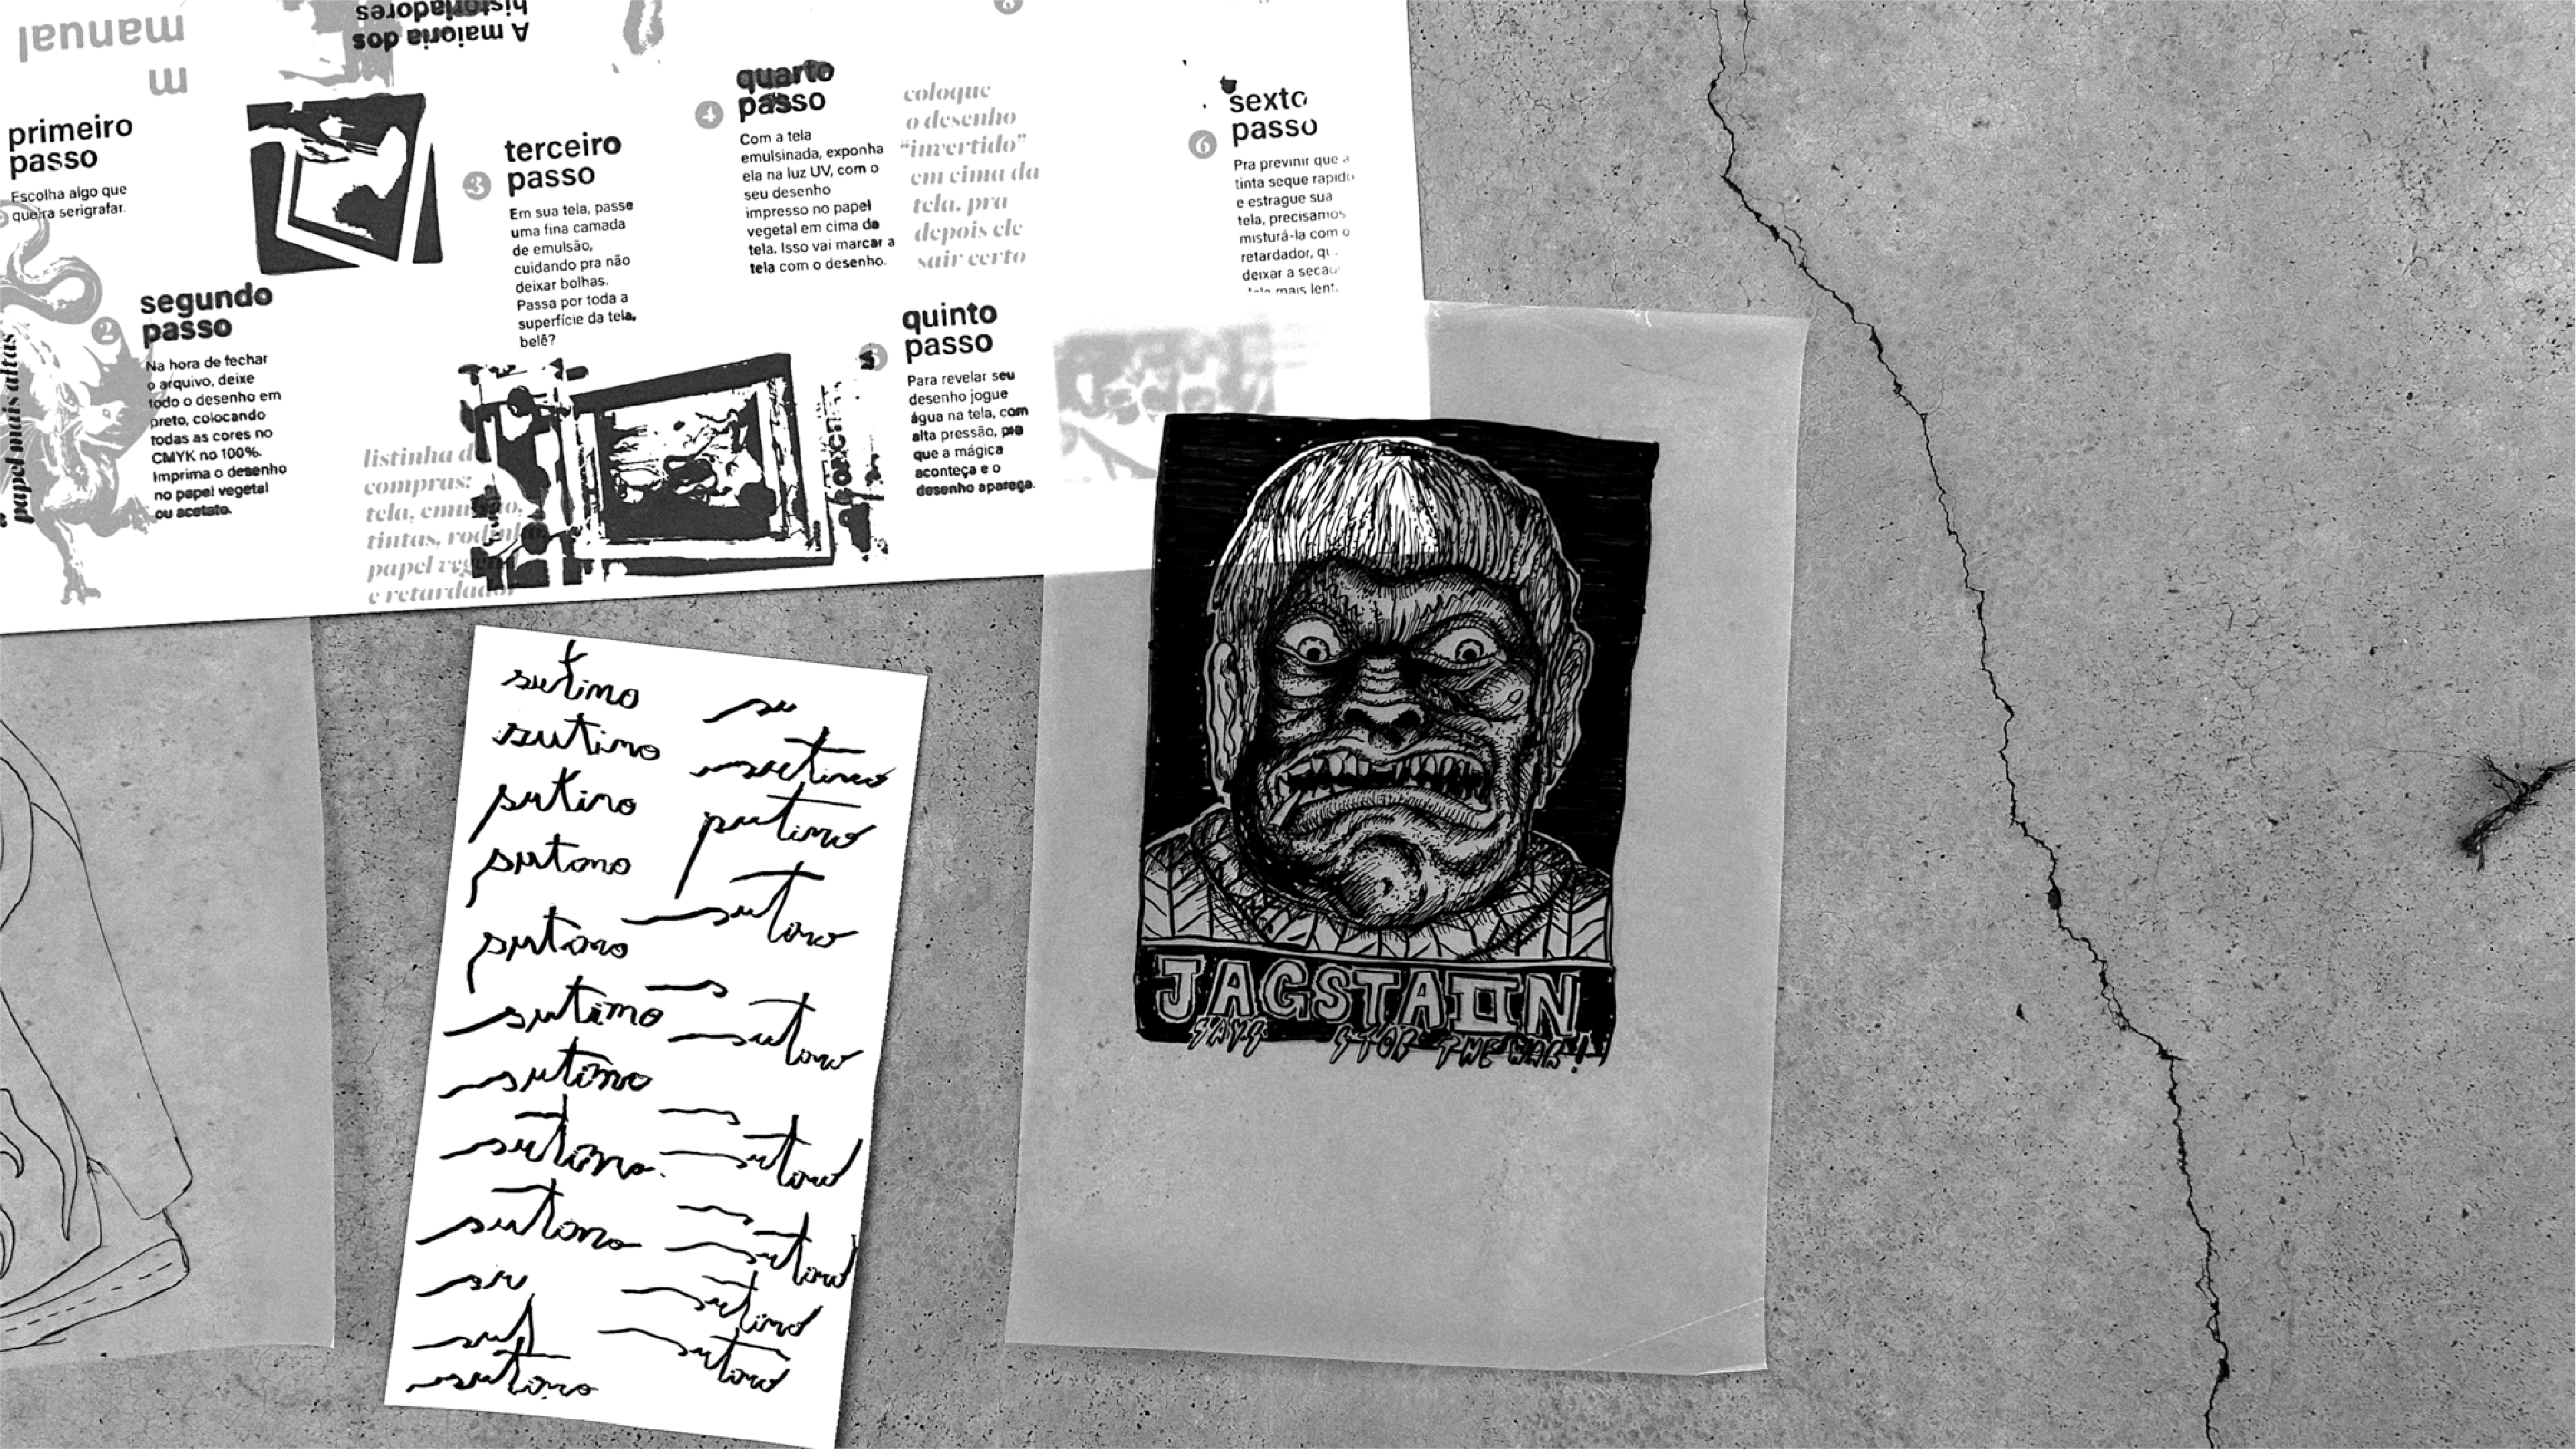 manual
m
A maioria dos
historiadores
primeiro
passo
Escolha algo que
queira serigrafar.
2
segundo
passo
Na hora de fechar
o arquivo, deixe
todo o desenho em
preto, colocando
todas as cores no
CMYK no 100%.
Imprima o desenho
no papel vegetal
ou acetato.
papel mais altas
3
terceiro
passo
Em sua tela, passe
uma fina camada
de emulsão,
cuidando pra não
deixar bolhas.
Passa por toda a
superfície da tela,
belê?
listinha d
compras:
tela, emulsão,
tintas, rodinho,
papel vegetal
e retardador
4
quarto
passo
Com a tela
emulsinada, exponha
ela na luz UV, com o
seu desenho
impresso no papel
vegetal em cima da
tela. Isso vai marcar a
tela com o desenho.
coloque
o desenho
“invertido”
em cima da
tela, pra
depois ele
sair certo
5
quinto
passo
Para revelar seu
desenho jogue
água na tela, com
alta pressão, pra
que a mágica
aconteça e o
desenho apareça.
6
sexto
passo
Pra previnir que a
tinta seque rapido
e estrague sua
tela, precisamos
misturá-la com o
retardador, qu
deixar a secag
mais lent
sutimo
sutimo
sutino
sutono
sutono
sutimo
sutimo
sutimo
sutono
su
sut
sutimo
su
sutimo
sutimo
sutono
s
sutono
sutono
sutono
sutimo
sutono
JAGSTAIIN
SAYS STOP THE WAR!